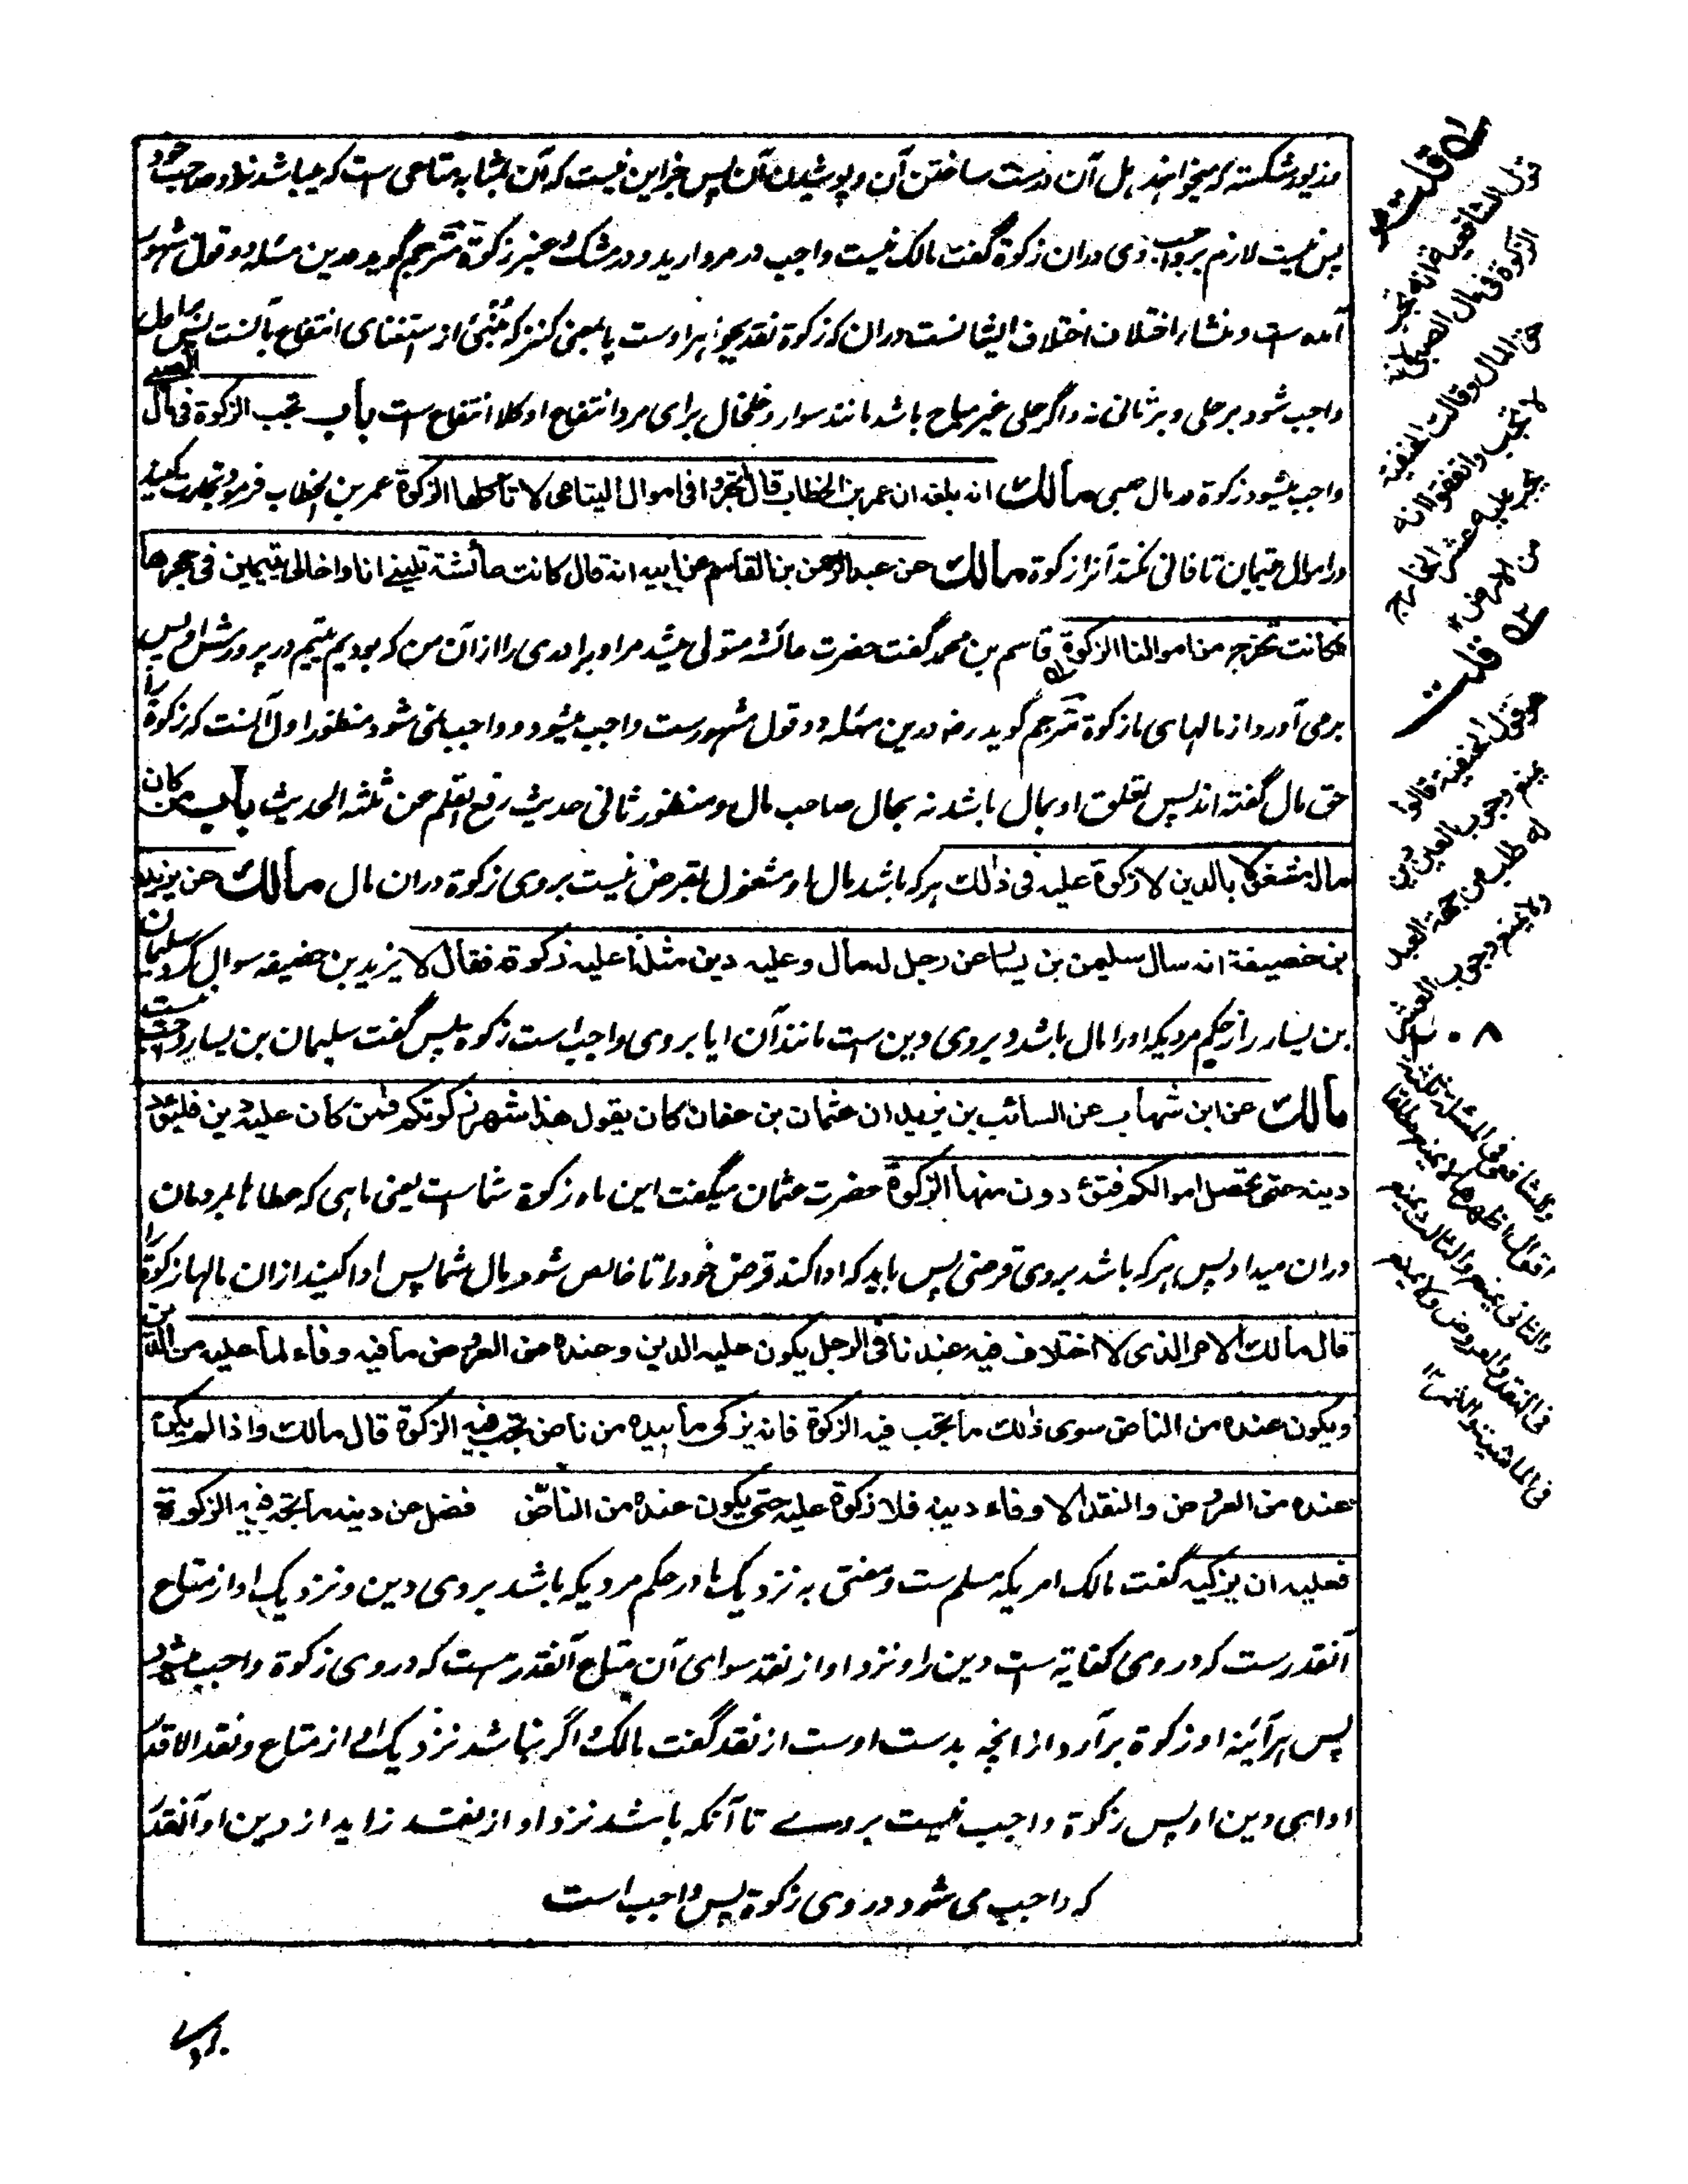 وزیور شکسته که میخواهند اهل آن درست ساختن آن و پوشیدن آن پس جز این نیست که آن بمثابه متاعی ست که میباشد نزد صاحب خود
پس نیست لازم بر صاحب وی دران زکوة گفت مالک نیست واجب در مروارید و در مشک و عنبر زکوة مترجم گوید درین مسئله دو قول مشهور
آمده ست و منشاء اختلاف اختلاف ایشانست دران که زکوة نقد بجواهر اوست یا بمعنی کنز که منبئ از استغنای انتفاع بآنست پس اول
واجب شود بر حلی و بر ثانی نه و اگر حلی غیر مباح باشد مانند سوار و خلخال برای مرد انتفاع او کلا انتفاع ست باب تجب الزکوة فی مال الصبی
واجب میشود زکوة در مال صبی مالك انه بلغه ان عمر بن الخطاب قال اتجروا فی اموال الیتامی لا تاکلها الزکوة عمر بن الخطاب فرمود تجارت بکنید
در اموال یتیمان تا فانی نکند آنرا زکوة مالك عن عبد الرحمن بن القاسم عن ابیه انه قال کانت عائشة تلینی انا واخالی یتیمین فی حجرها
فکانت تخرج من اموالنا الزکوة قاسم بن محمد گفت حضرت عائشه متولی میشد مرا و برادری را از آن من که بودیم یتیم در پرورش او پس
برمی آورد از مالهای ما زکوة مترجم گوید رضه درین مسئله دو قول مشهورست واجب میشود و واجب نمی شود منظور اول آنست که زکوة را
حق مال گفته اند پس تعلق او بمال باشد نه بحال صاحب مال و منظور ثانی حدیث رفع القلم عن ثلثه الحدیث باب من کان
ماله مشغولا بالدین لا زکوة علیه فی ذلك هر که باشد مال او مشغول بقرض نیست بر وی زکوة دران مال مالك عن یزید
بن خصیفة انه سال سلیمن بن یسار عن رجل له مال وعلیه دین مثله اعلیه زکوة فقال لا یزید بن خصیفه سوال کرد سلیمان
بن یسار را از حکم مردیکه او را مال باشد و بر وی دین ست مانند آن ایا بر وی واجب است زکوة پس گفت سلیمان بن یسار واجب نیست
مالك عن ابن شهاب عن السائب بن یزید ان عثمان بن عفان کان یقول هذا شهر زکوتکم فمن کان علیه دین فلیؤد
دینه حتی تحصل اموالکم فتؤدون منها الزکوة حضرت عثمان میگفت این ماه زکوة شماست یعنی ماهی که عطاها بمردمان
دران میداد پس هر که باشد بر وی قرضی پس باید که ادا کند قرض خود را تا خالص شود مال شما پس ادا کنید ازان مالها زکوة را
قال مالك الامر الذی لا اختلاف فیه عندنا فی الرجل یکون علیه الدین وعنده من العروض ما فیه وفاء لما علیه من الدین
ویکون عنده من الناض سوی ذلك ما تجب فیه الزکوة فانه یزکی ما بیده من ناض تجب فیه الزکوة قال مالك واذا لم یکن
عنده من العروض والنقد الا وفاء دینه فلا زکوة علیه حتی یکون عنده من الناض فضل عن دینه ما تجب فیه الزکوة
فعلیه ان یزکیه گفت مالک امریکه مسلم ست و مفتی به نزدیک ما در حکم مردیکه باشد بر وی دین و نزدیک او از متاع
آنقدرست که در وی کفایة ست دین را و نزد او از نقد سوای آن متاع آنقدر هست که در وی زکوة واجب میشود
پس هر آئینه او زکوة برآرد از انچه بدست اوست از نقد گفت مالک و اگر نباشد نزدیک او از متاع و نقد الا قدر
ادای دین او پس زکوة واجب نیست بر وے تا آنکه باشد نزد او از نقد زاید از دین او آنقدر
که واجب می شود در وی زکوة پس واجب است
بروے
قلت
قول الشافعیة انه تجب
الزکوة فی مال الصبی لانه
حق المال وقالت الحنفیة
لا تجب واتفقوا انه
یجب علیه عشر الخارج
من الارض
قلت
قالوا
یمنع وجوب
له طلب من جهة العبد
ولا یمنع وجوب العشر
وللشافعی فی المسئلة ثلثة
اقوال اظهرها لا یمنع مطلقا
والثانی یمنع والثالث یمنع
فی النقد والعروض ولا یمنع
فی الماشیة والثمر ۱۲